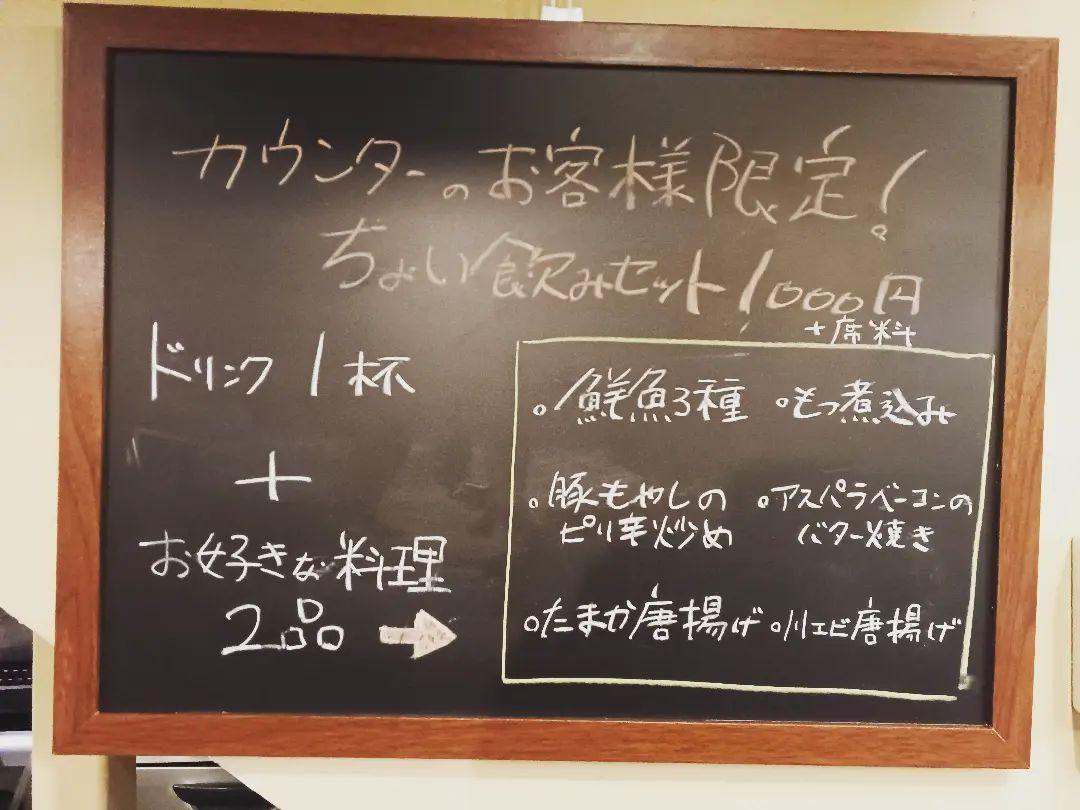 カウンターのお客様限定!
ちょい飲みセット!1000円
+席料
ドリンク1杯
+
お好きな料理
2品→
○鮮魚3種 ○もつ煮込み
○豚もやしの
ピリ辛炒め
○アスパラベーコンの
バター焼き
○たまか唐揚げ ○川エビ唐揚げ